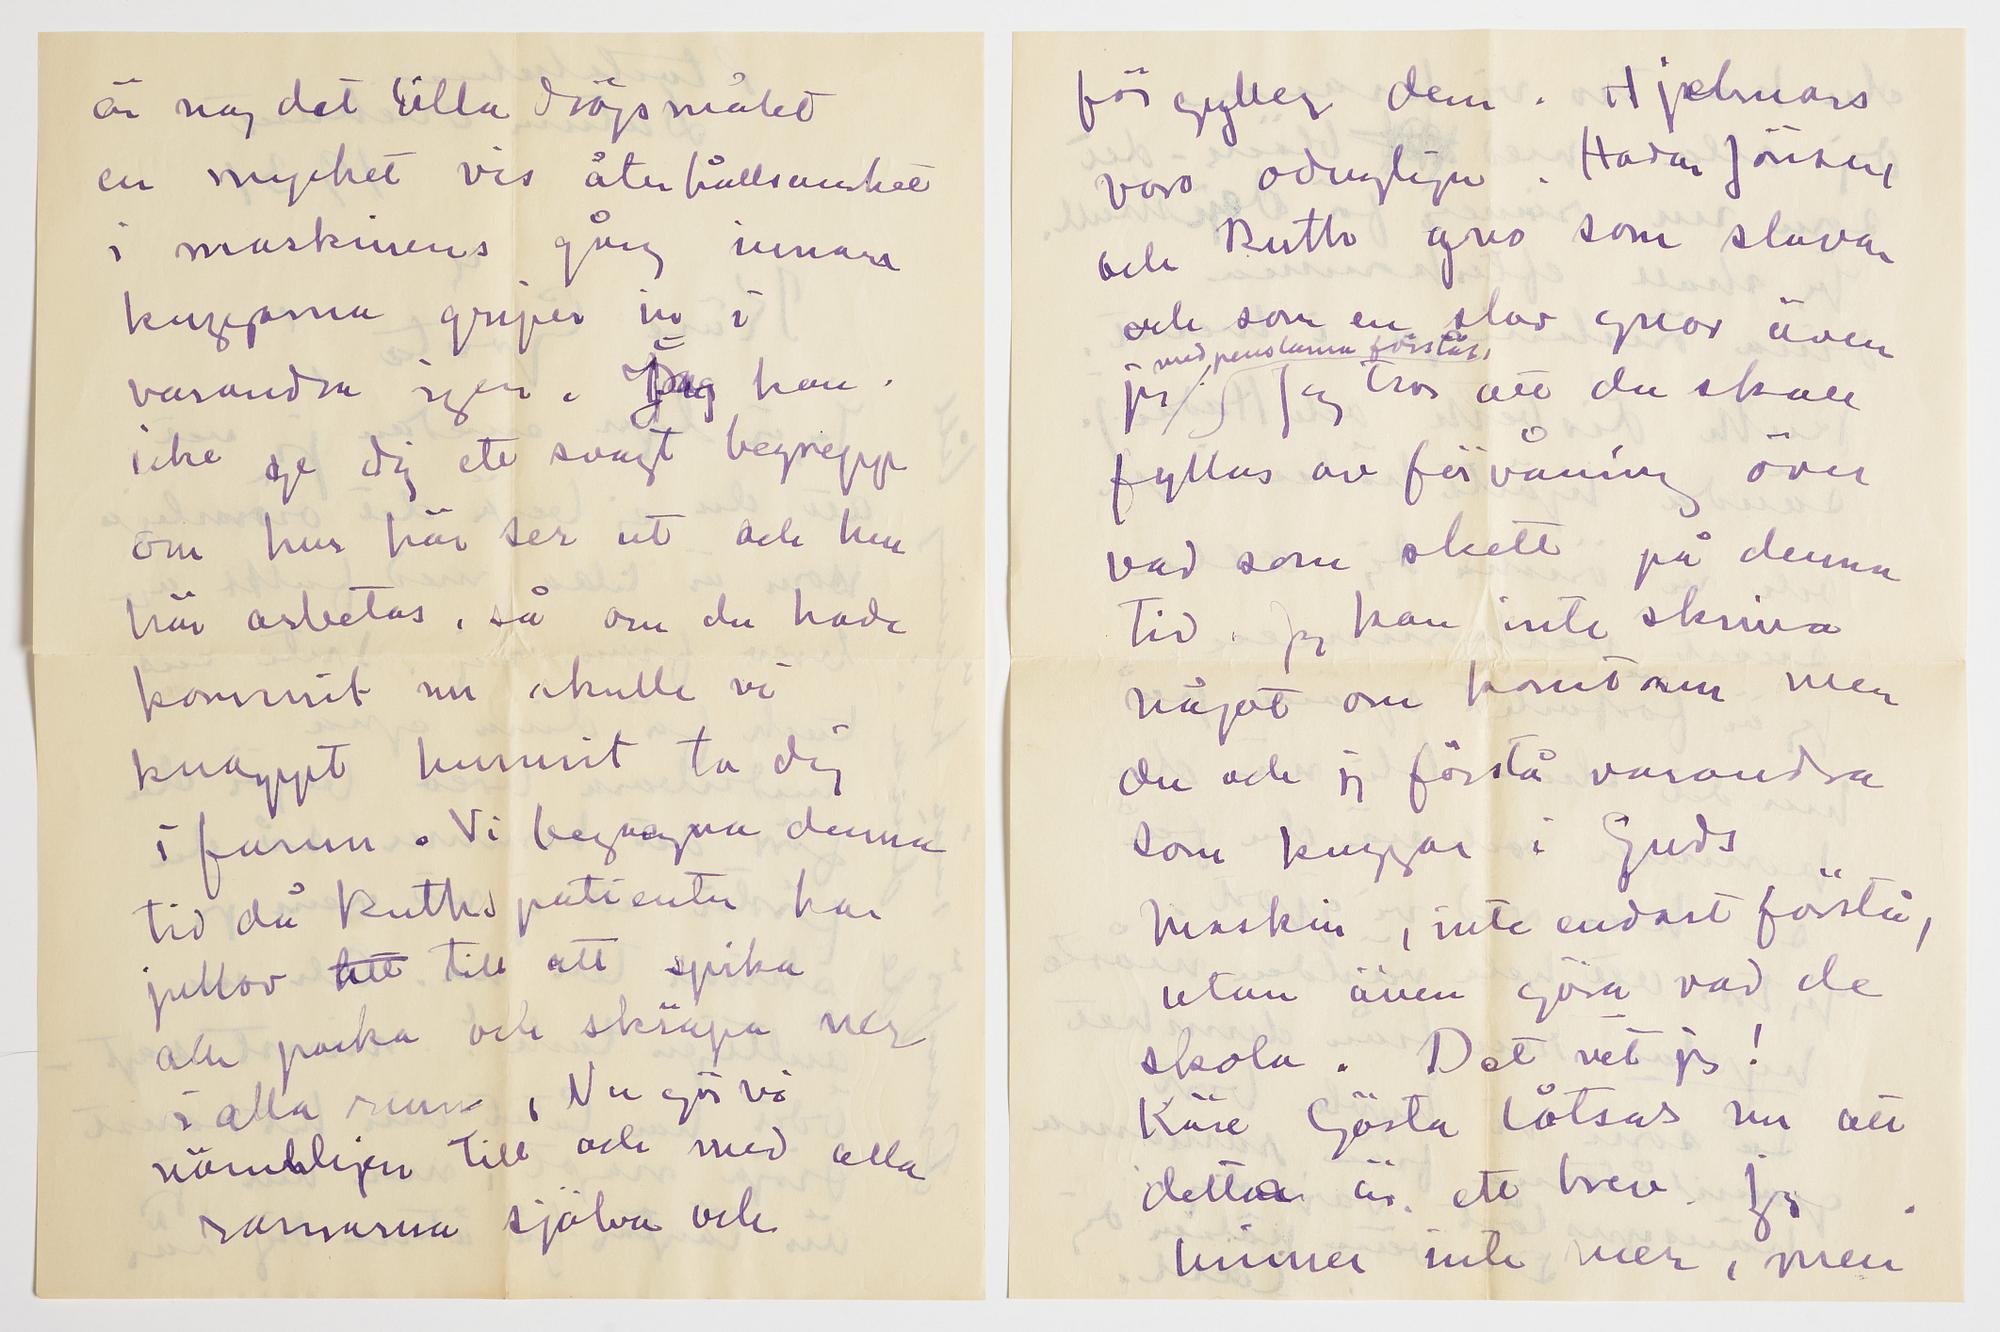 är nog det lilla dröjsmålet
en mycket vis återhållsamhet
i maskinens gång innan
kuggarna griper in i
varandra igen. Jag kan
icke ge dig ett svagt begrepp
om hur här ser ut och hur
här arbetas, så om du hade
kommit nu skulle vi
knappt hunnit ta dig
i famn. Vi begagna denna
tid då Ruths patienter har
jullov till att spika
och packa och skräpa ner
i alla rum, Nu gör vi
nämligen till och med alla
ramarna själva och
förgyller dem. Hjelmars
voro odugliga. Hadar Jönzén
och Ruth gno som slavar
och som en slav gnor även
med penslarna förstås,
jag Jag tror att du skall
fyllas av förvåning över
vad som skett på denna
tid. Jag kan inte skriva
något om konsten men
du och jag förstå varandra
som kuggar i Guds
Maskin, inte endast förstå,
utan även göra vad de
skola. Det vet jag!
Käre Gösta låtsas nu att
detta är ett brev. Jag
hinner inte mer, men